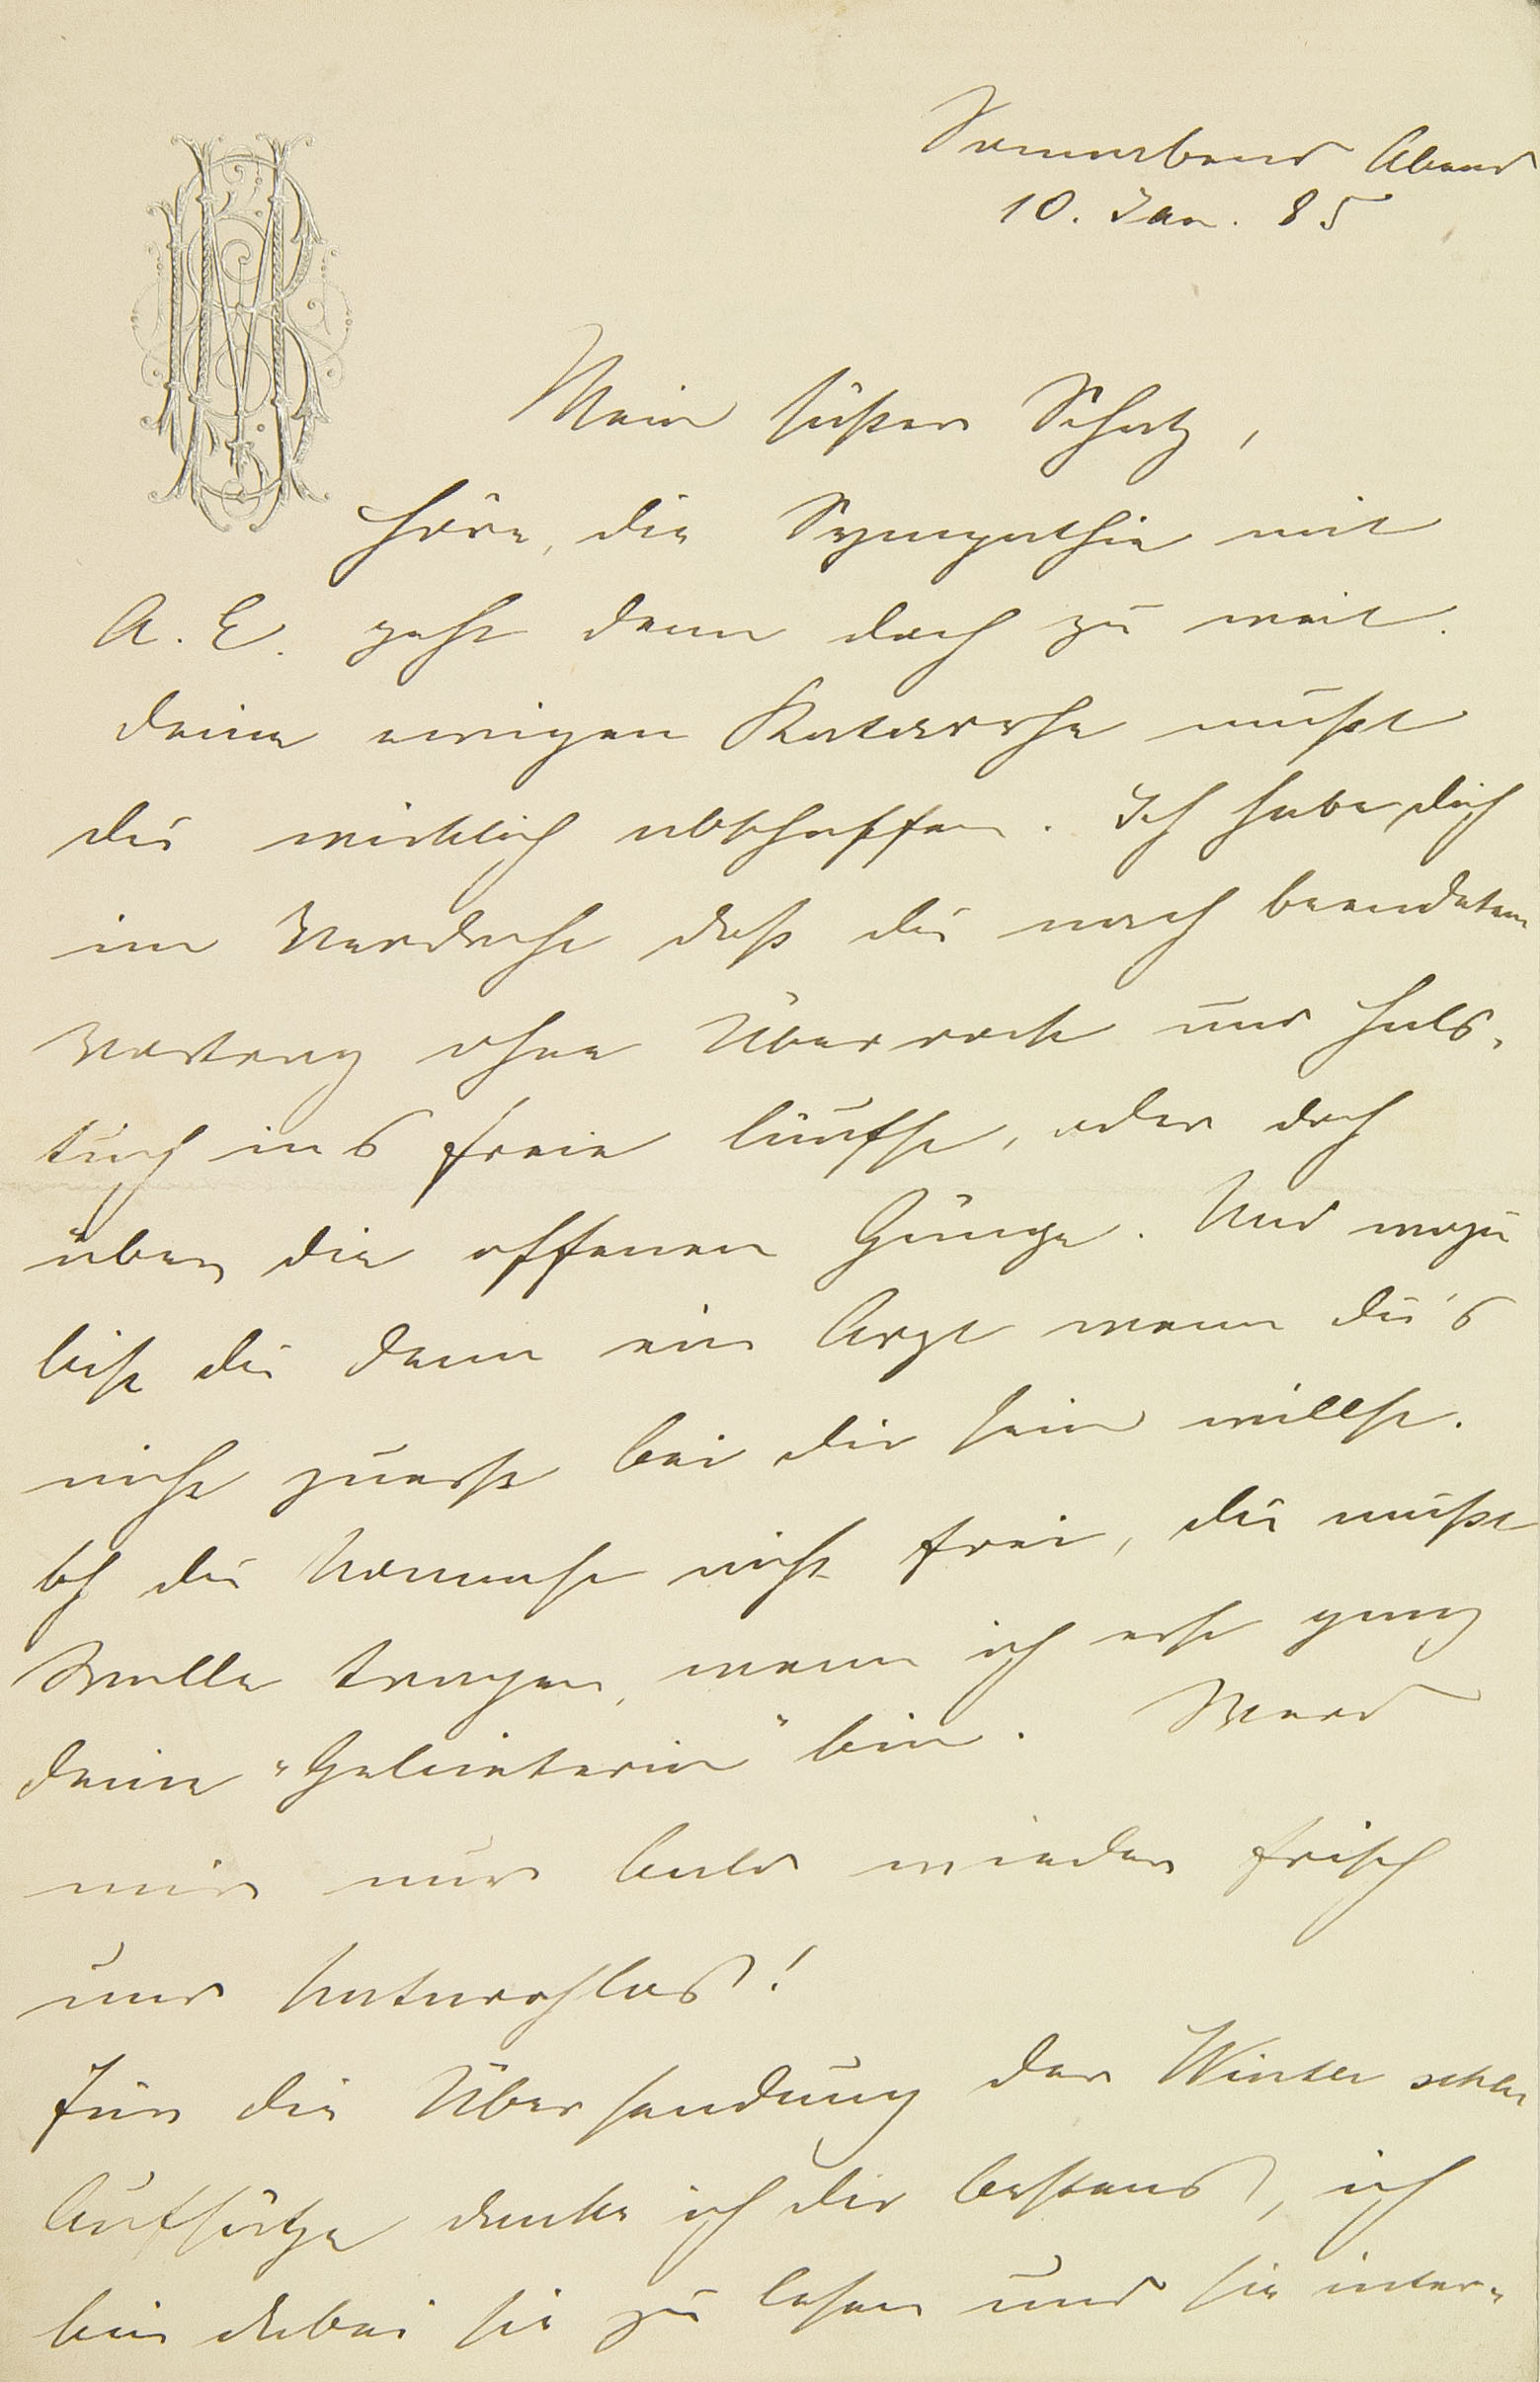 Sonnabend Abend
10. Jan. 85
Mein süßer Schatz,
höre, die Sympathie mit
A. E. geht denn doch zu weit.
deine ewigen Katarrhe mußt
du wirklich abschaffen. Ich habe dich
im Verdacht daß du nach beendetem
Vortrag ohne Überrock und Hals-
tuch ins freie läufst, oder doch
über die offenen Gänge. Und wozu
bist du denn ein Arzt wenn du's
nicht zuerst bei dir sein willst.
du nicht frei, du mußt
Wolle tragen, wenn ich erst ganz
deine "Gebieterin" bin. Werd
mir nur bald wieder frisch
und katarrhlos!
Für die Übersendung der Winter
Aufsätze danke ich dir bestens, ich
bin dabei sie zu lesen und sie inter-